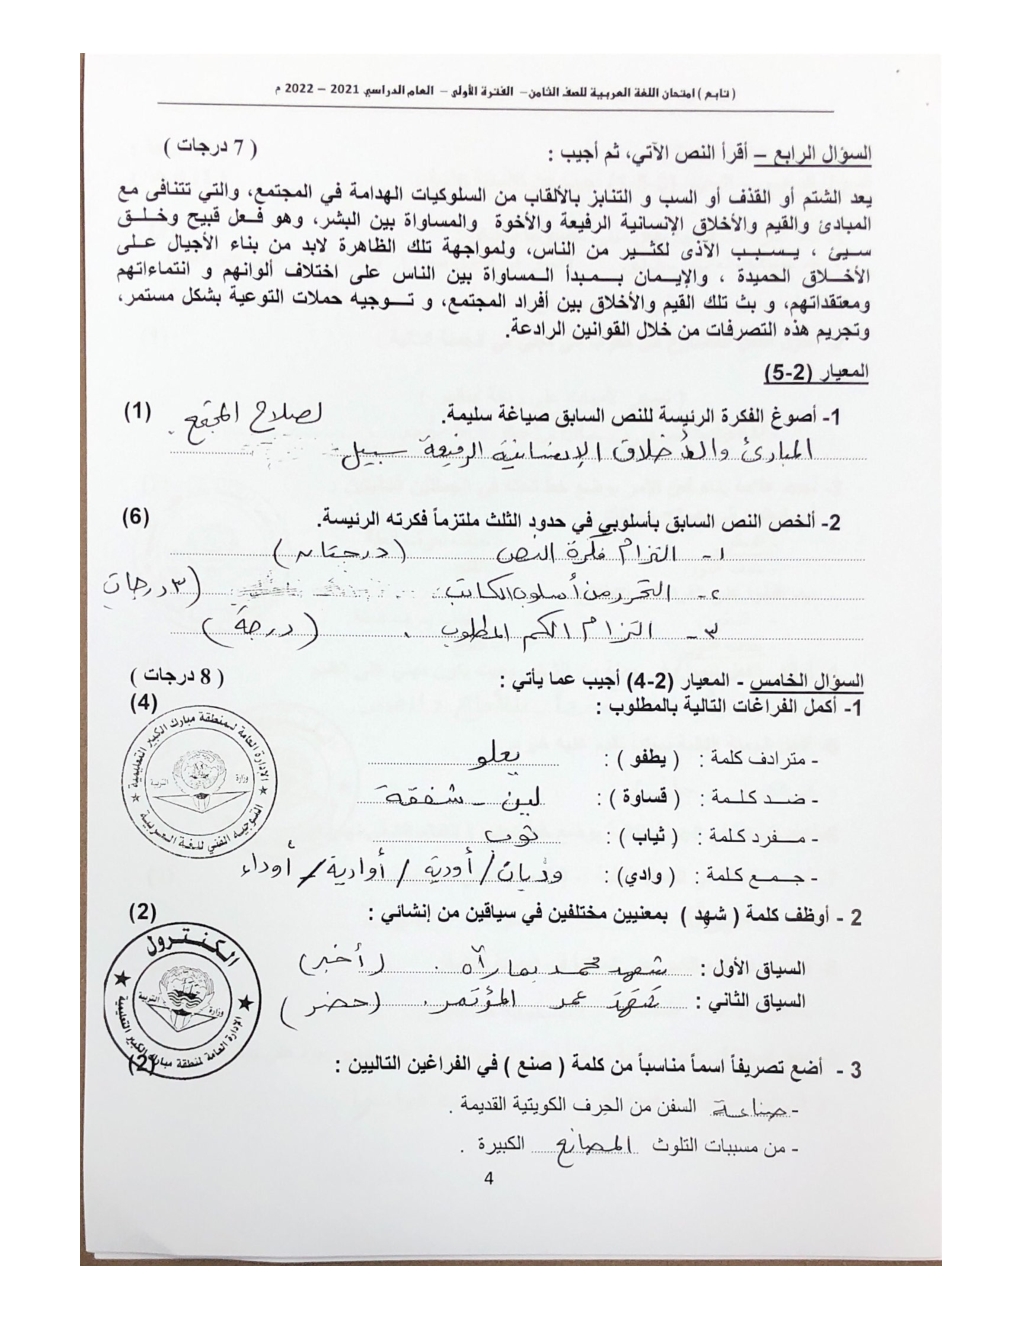 ( تابع ) امتحان اللغة العربية للصف الثامن– الفترة الأولى – العام الدراسي 2021 – 2022 م
السؤال الرابع – أقرأ النص الآتي، ثم أجيب :
( 7 درجات )
يعد الشتم أو القذف أو السب و التنابز بالألقاب من السلوكيات الهدامة في المجتمع، والتي تتنافى مع
المبادئ والقيم والأخلاق الإنسانية الرفيعة والأخوة والمساواة بين البشر، وهو فعل قبيح وخلق
سيئ ، يسبب الأذى لكثير من الناس، ولمواجهة تلك الظاهرة لابد من بناء الأجيال على
الأخلاق الحميدة ، والإيمان بمبدأ المساواة بين الناس على اختلاف ألوانهم و انتماءاتهم
ومعتقداتهم، و بث تلك القيم والأخلاق بين أفراد المجتمع، و توجيه حملات التوعية بشكل مستمر،
وتجريم هذه التصرفات من خلال القوانين الرادعة.
المعيار (2-5)
1- أصوغ الفكرة الرئيسة للنص السابق صياغة سليمة. لصلاح المجتمع . (1)
المبادئ والأخلاق الإنسانية الرفيعة سبيل
2- ألخص النص السابق بأسلوبي في حدود الثلث ملتزماً فكرته الرئيسة. (6)
١- التزام فكرة النص ( درجتان )
٢- التحرر من أسلوب الكاتب. (٣ درجات
٣- التزام الكم المطلوب . ( درجة )
السؤال الخامس - المعيار (2-4) أجيب عما يأتي : ( 8 درجات )
1- أكمل الفراغات التالية بالمطلوب : (4)
- مترادف كلمة : ( يطفو ) : يعلو
- ضد كلمة : ( قساوة ) : لين - شفقة
- مفرد كلمة : ( ثياب ) : ثوب
- جمع كلمة : ( وادي) : وديان / أودية / أوادية / أوداء
2 - أوظف كلمة ( شهد ) بمعنيين مختلفين في سياقين من إنشائي : (2)
السياق الأول : شهد محمد بما رآه . (أخبر)
السياق الثاني : شهد عمر المؤتمر. (حضر)
3 - أضع تصريفاً اسماً مناسباً من كلمة ( صنع ) في الفراغين التاليين : (2)
- صناعة السفن من الحرف الكويتية القديمة .
- من مسببات التلوث المصانع الكبيرة .
4
الإدارة العامة لمنطقة مبارك الكبير التعليمية
وزارة التربية
التوجيه الفني للغة العربية
الكنترول
وزارة التربية
الإدارة العامة لمنطقة مبارك الكبير التعليمية